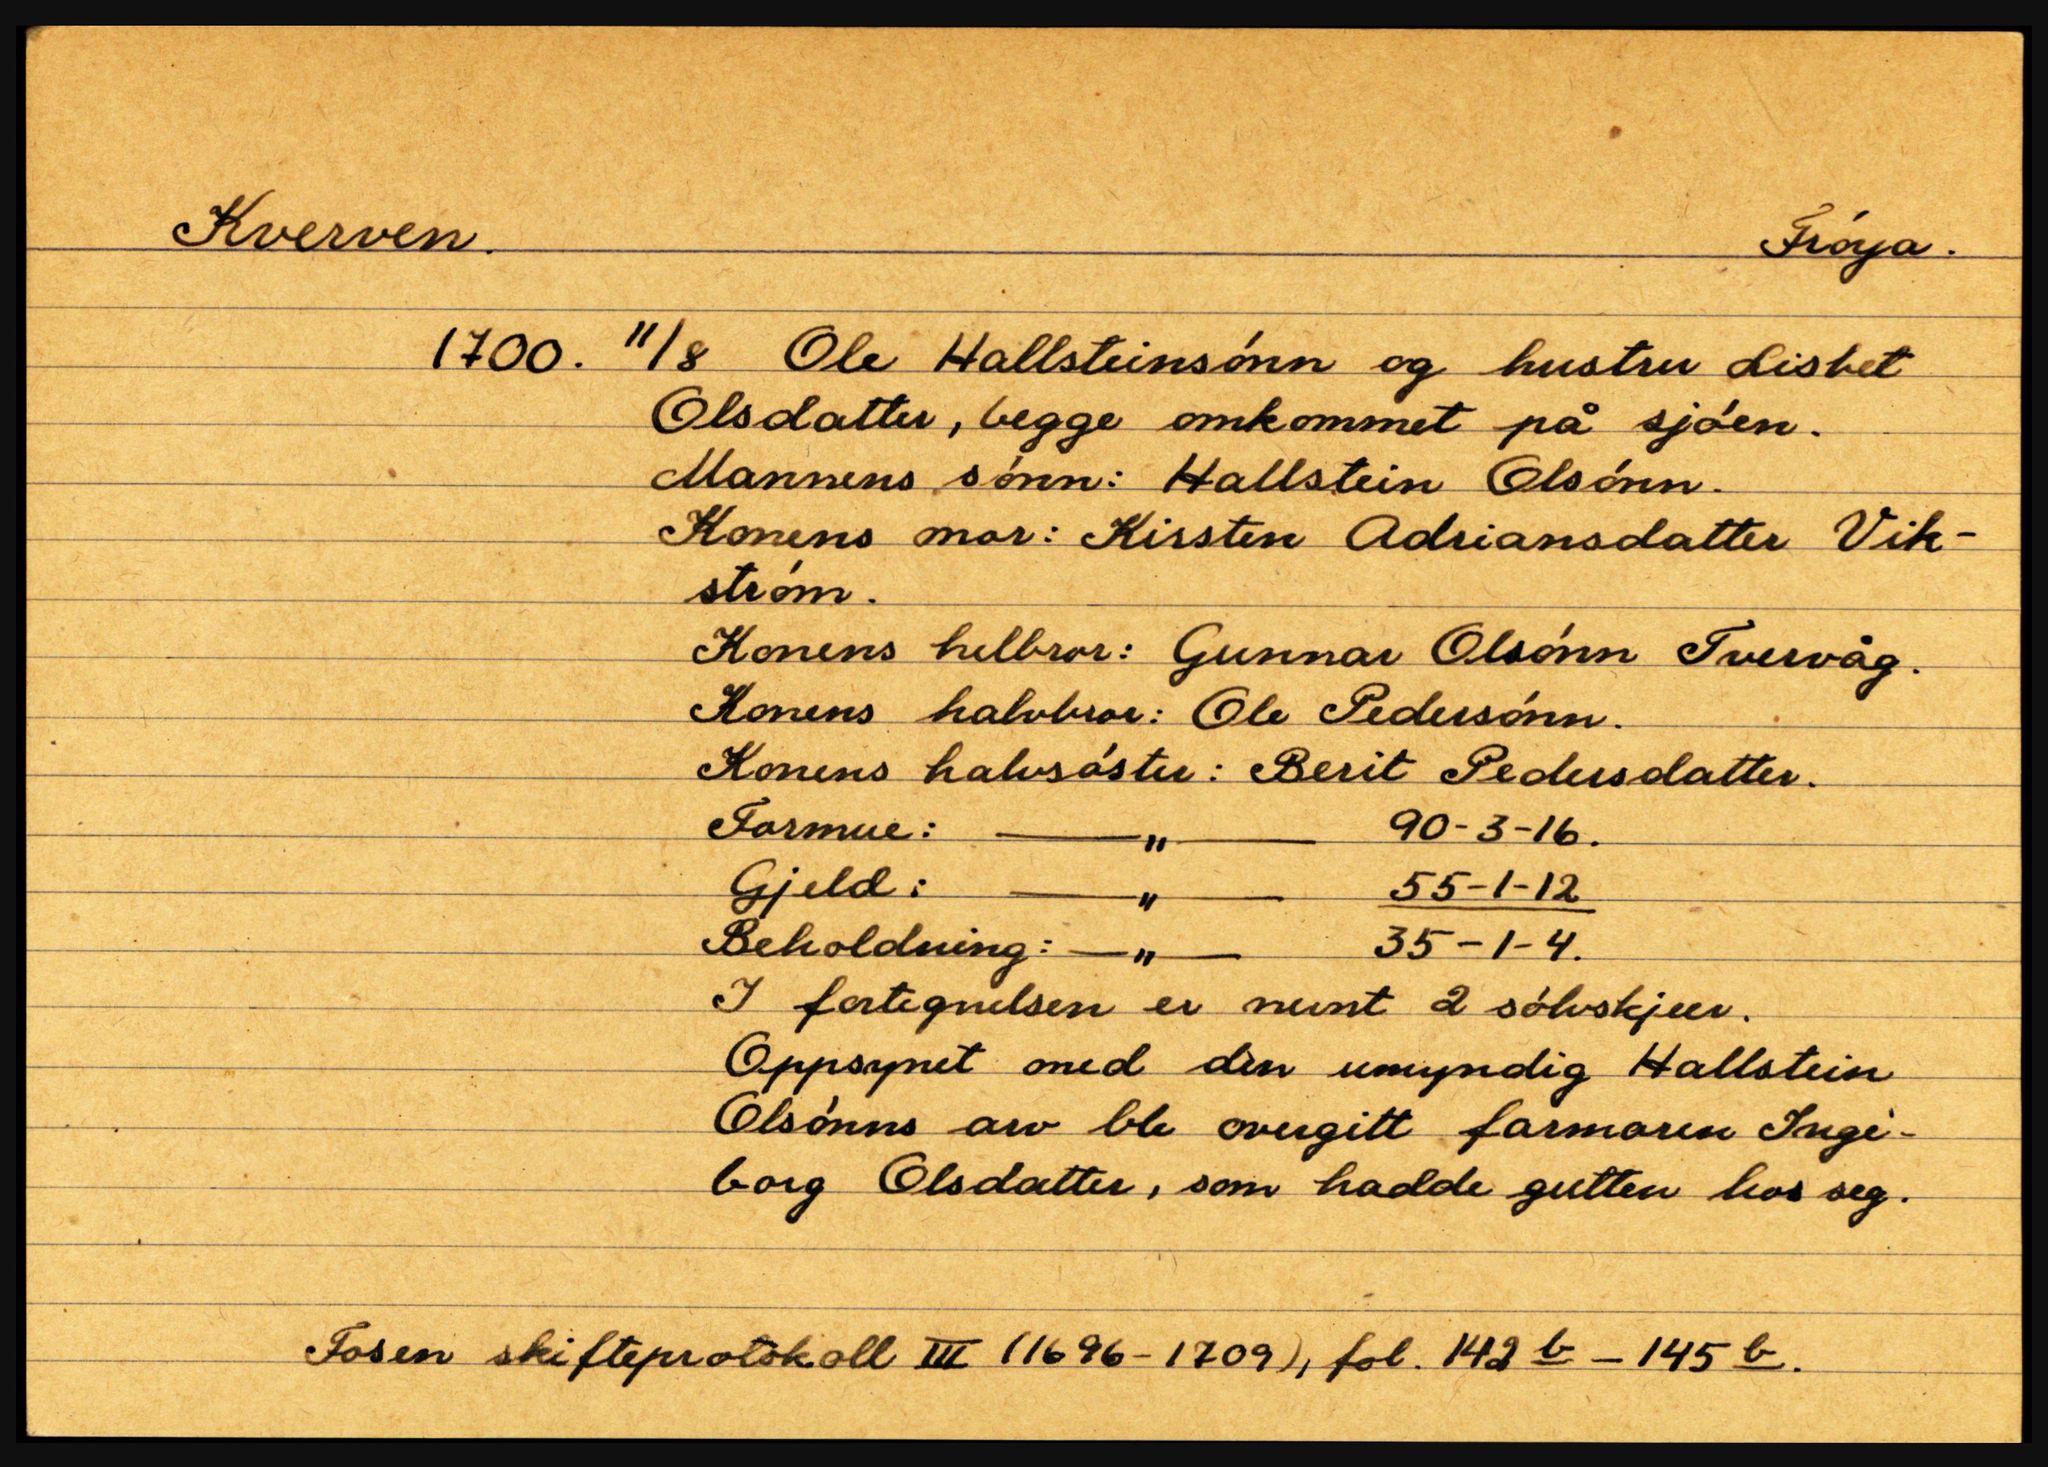 Kverven. Fróya.
1700. 11/8 Ole Hallsteinsónn og hustru Lisbet
Olsdatter, begge omkommet på sjóen.
Mannens sónn: Hallstein Olsónn.
Konens mor: Kirsten Adriansdatter Vik-
stróm.
Konens helbror: Gunnar Olsónn Tvervåg.
Konens halvbror: Ole Pedersónn.
Konens halvsóster: Berit Pedersdatter.
Formue: —— " —— 90-3-16.
Gjeld: —— " —— 55-1-12
Beholdning: — " — 35-1-4.
I fortegnelsen er nevnt 2 sólvskjeer.
Oppsynet med den umyndig Hallstein
Olsónns arv ble overgitt farmoren Inge-
borg Olsdatter, som hadde gutten hos seg.
Fosen skifteprotokoll III (1696-1709), fol. 142 b – 145 b.